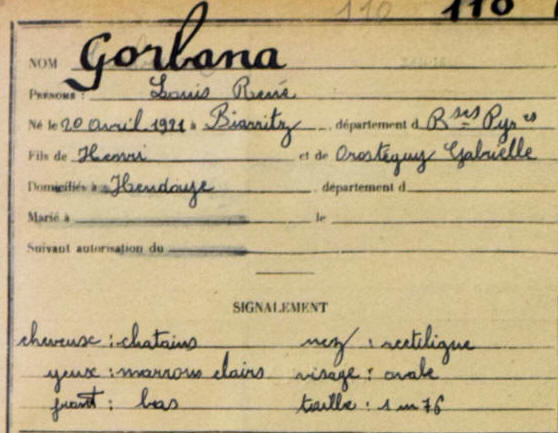 110 110
NOM Gorbana
PRÉNOMS : Louis René
Né le 20 avril 1921 à Biarritz, département d Bses Pyr es
Fils de Henri et de Orostéguy Gabrielle
Domiciliés à Hendaye, département d
Marié à le
Suivant autorisation du
SIGNALEMENT
cheveux : chatains nez : rectiligne
yeux : marrons clairs visage : ovale
front : bas taille : 1m76